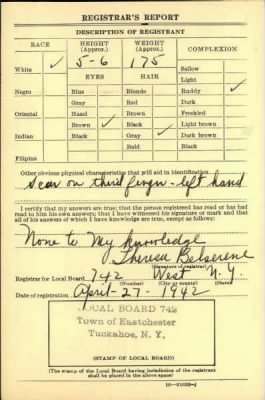 REGISTRAR'S REPORT
DESCRIPTION OF REGISTRANT
RACE
HEIGHT
(Approx.)
WEIGHT
(Approx.)
COMPLEXION
White ✓
5-6
175
Sallow
EYES
HAIR
Light
Negro
Blue
Blonde
Ruddy ✓
Gray
Red
Dark
Oriental
Hazel
Brown ✓
Freckled
Brown ✓
Black
Light brown
Indian
Black
Gray ✓
Dark brown
Bald
Black
Filipino
Other obvious physical characteristics that will aid in identification
Scar on third finger - left hand
I certify that my answers are true; that the person registered has read or has
had read to him his own answers; that I have witnessed his signature or mark and that
all of his answers of which I have knowledge are true, except as follows:
None to My knowledge
Theresa Belserene
(Signature of registrar)
Registrar for Local Board 742 West N.Y.
(Number) (City or county) (State)
Date of registration April-27-1942
LOCAL BOARD 742
Town of Eastchester
Tuckahoe, N. Y.
(STAMP OF LOCAL BOARD)
(The stamp of the Local Board having jurisdiction of the registrant
shall be placed in the above space)